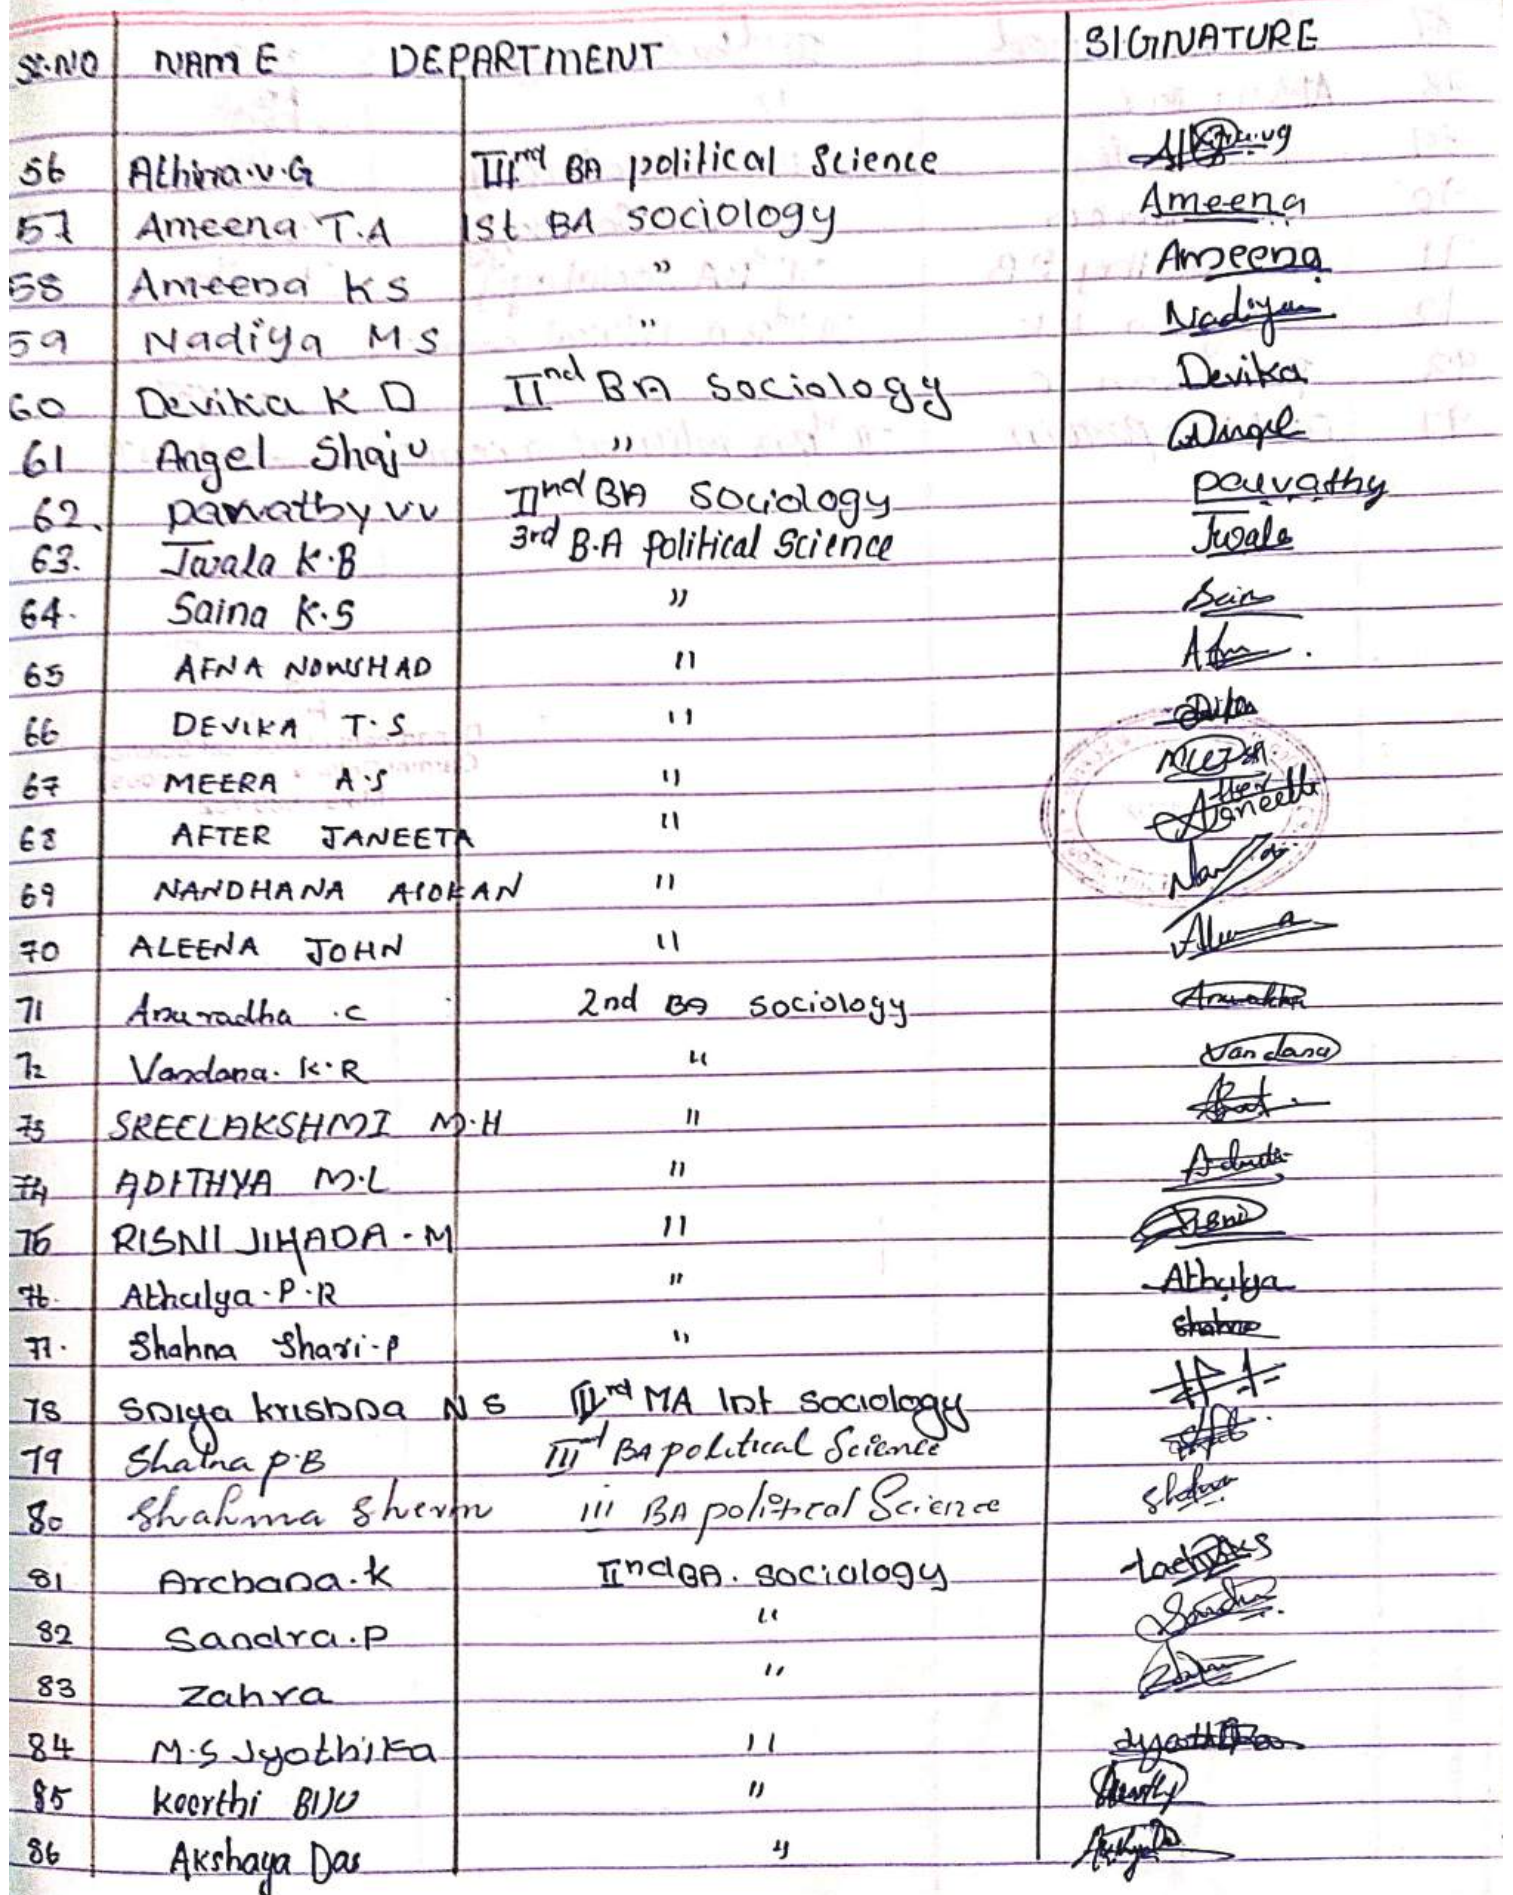 Sl.NO NAME DEPARTMENT SIGNATURE
56 Athira.V.G IIIrd BA political Science
57 Ameena T.A 1st BA sociology Ameena
58 Ameena K S " Ameena
59 Nadiya M S " Nadiya
60 Devika K D IInd BA Sociology Devika
61 Angel Shaju " Angel
62. Parvathy V V IInd BA Sociology Parvathy
63. Jwala K.B 3rd B.A Political Science Jwala
64. Saina K.S "
65 AFNA NOWSHAD "
66 DEVIKA T.S "
67 MEERA A.S "
68 AFTER JANEETA "
69 NANDHANA ASOKAN "
70 ALEENA JOHN "
71 Anuradha .C 2nd BA Sociology
72 Vandana. K.R " Vandana
73 SREELAKSHMI M.H "
74 ADITHYA M.L "
75 RISNI JIHADA.M " Risni
76. Athulya.P.R " Athulya
77. Shahna Shari.P " Shahna
78 Sniya krishna N S MA Int Sociology
79 P.B IIIrd BA political Science
80 Shahma Sherin iii BA political Science
81 Archana.K IInd BA. Sociology
82 Sandra.P " Sandra
83 Zahra "
84 M.S Jyothika "
85 Keerthi BIJU "
86 Akshaya Das "